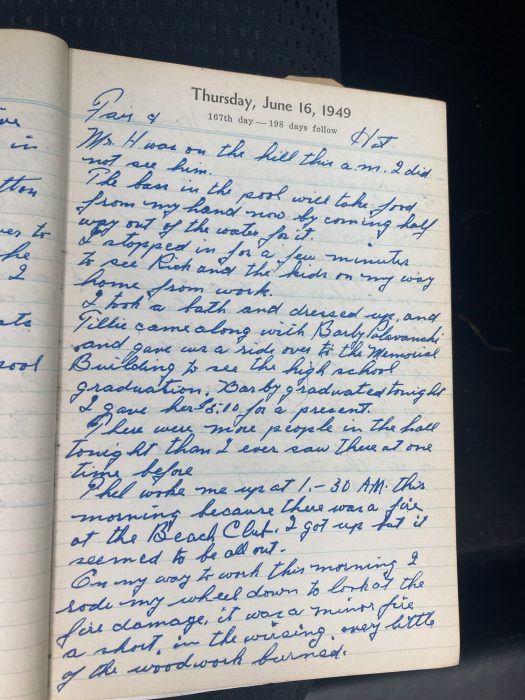 Thursday, June 16, 1949
167th day—198 days follow
Fair & Hot
Mr. H was on the hill this a.m. I did
not see him.
The bass in the pool will take food
from my hand now by coming half
way out of the water for it.
I stopped in for a few minutes
to see Rich and the kids on my way
home from work.
I took a bath and dressed up, and
Tillie came along with Barby
and gave us a ride over to the Memorial
Building to see the high school
graduation. Barby graduated tonight
I gave her for a present.
There were more people in the hall
tonight than I ever saw there at one
time before
Phel woke me up at 1.-30 A.M. this
morning because there was a fire
at the Beach Club. I got up but it
seemed to be all out.
On my way to work this morning I
rode my wheel down to look at the
fire damage. it was a minor fire
a short, in the wireing, very little
of the woodwork burned.
ve
in
tton
to
he
I
ats
pool